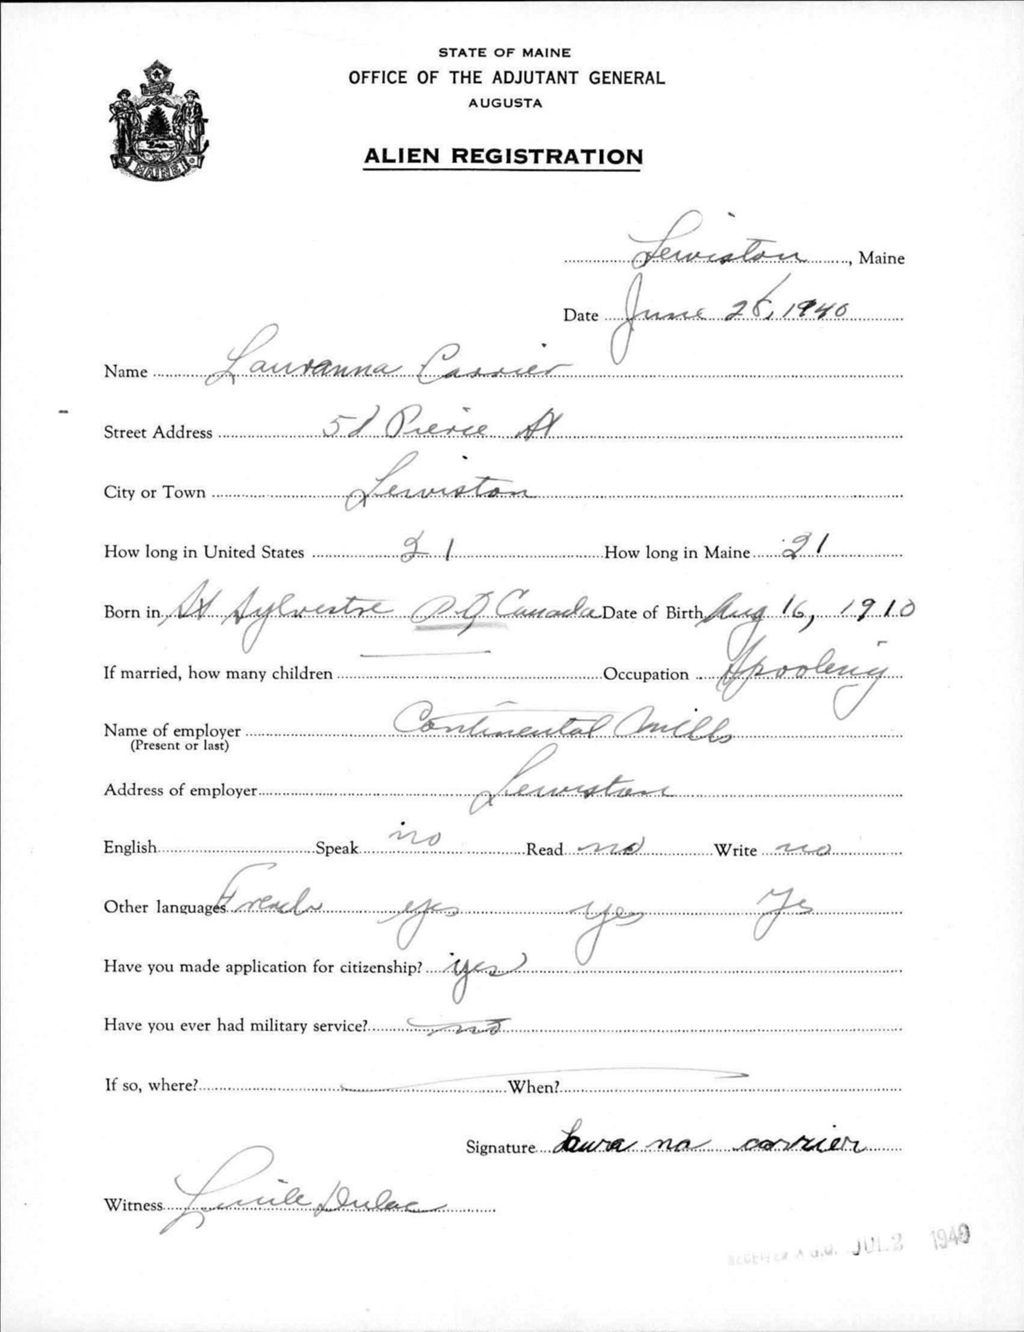 STATE OF MAINE
OFFICE OF THE ADJUTANT GENERAL
AUGUSTA
MAINE
ALIEN REGISTRATION
Lewiston, Maine
Date June 28, 1940
Name Lauranna Carrier
Street Address 51 Pierce St
City or Town Lewiston
How long in United States 21 How long in Maine 21
Born in St Sylvestre P.Q Canada Date of Birth Aug 16, 1910
If married, how many children Occupation Spooling
Name of employer Continental Mills
(Present or last)
Address of employer Lewiston
English Speak no Read no Write no
Other languages French yes yes Yes
Have you made application for citizenship? yes
Have you ever had military service? no
If so, where? When?
Signature Laura na carrier
Witness Lucile Dulac
RECEIVED A.G.O. JUL 2 1940